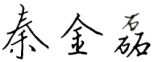 秦金磊